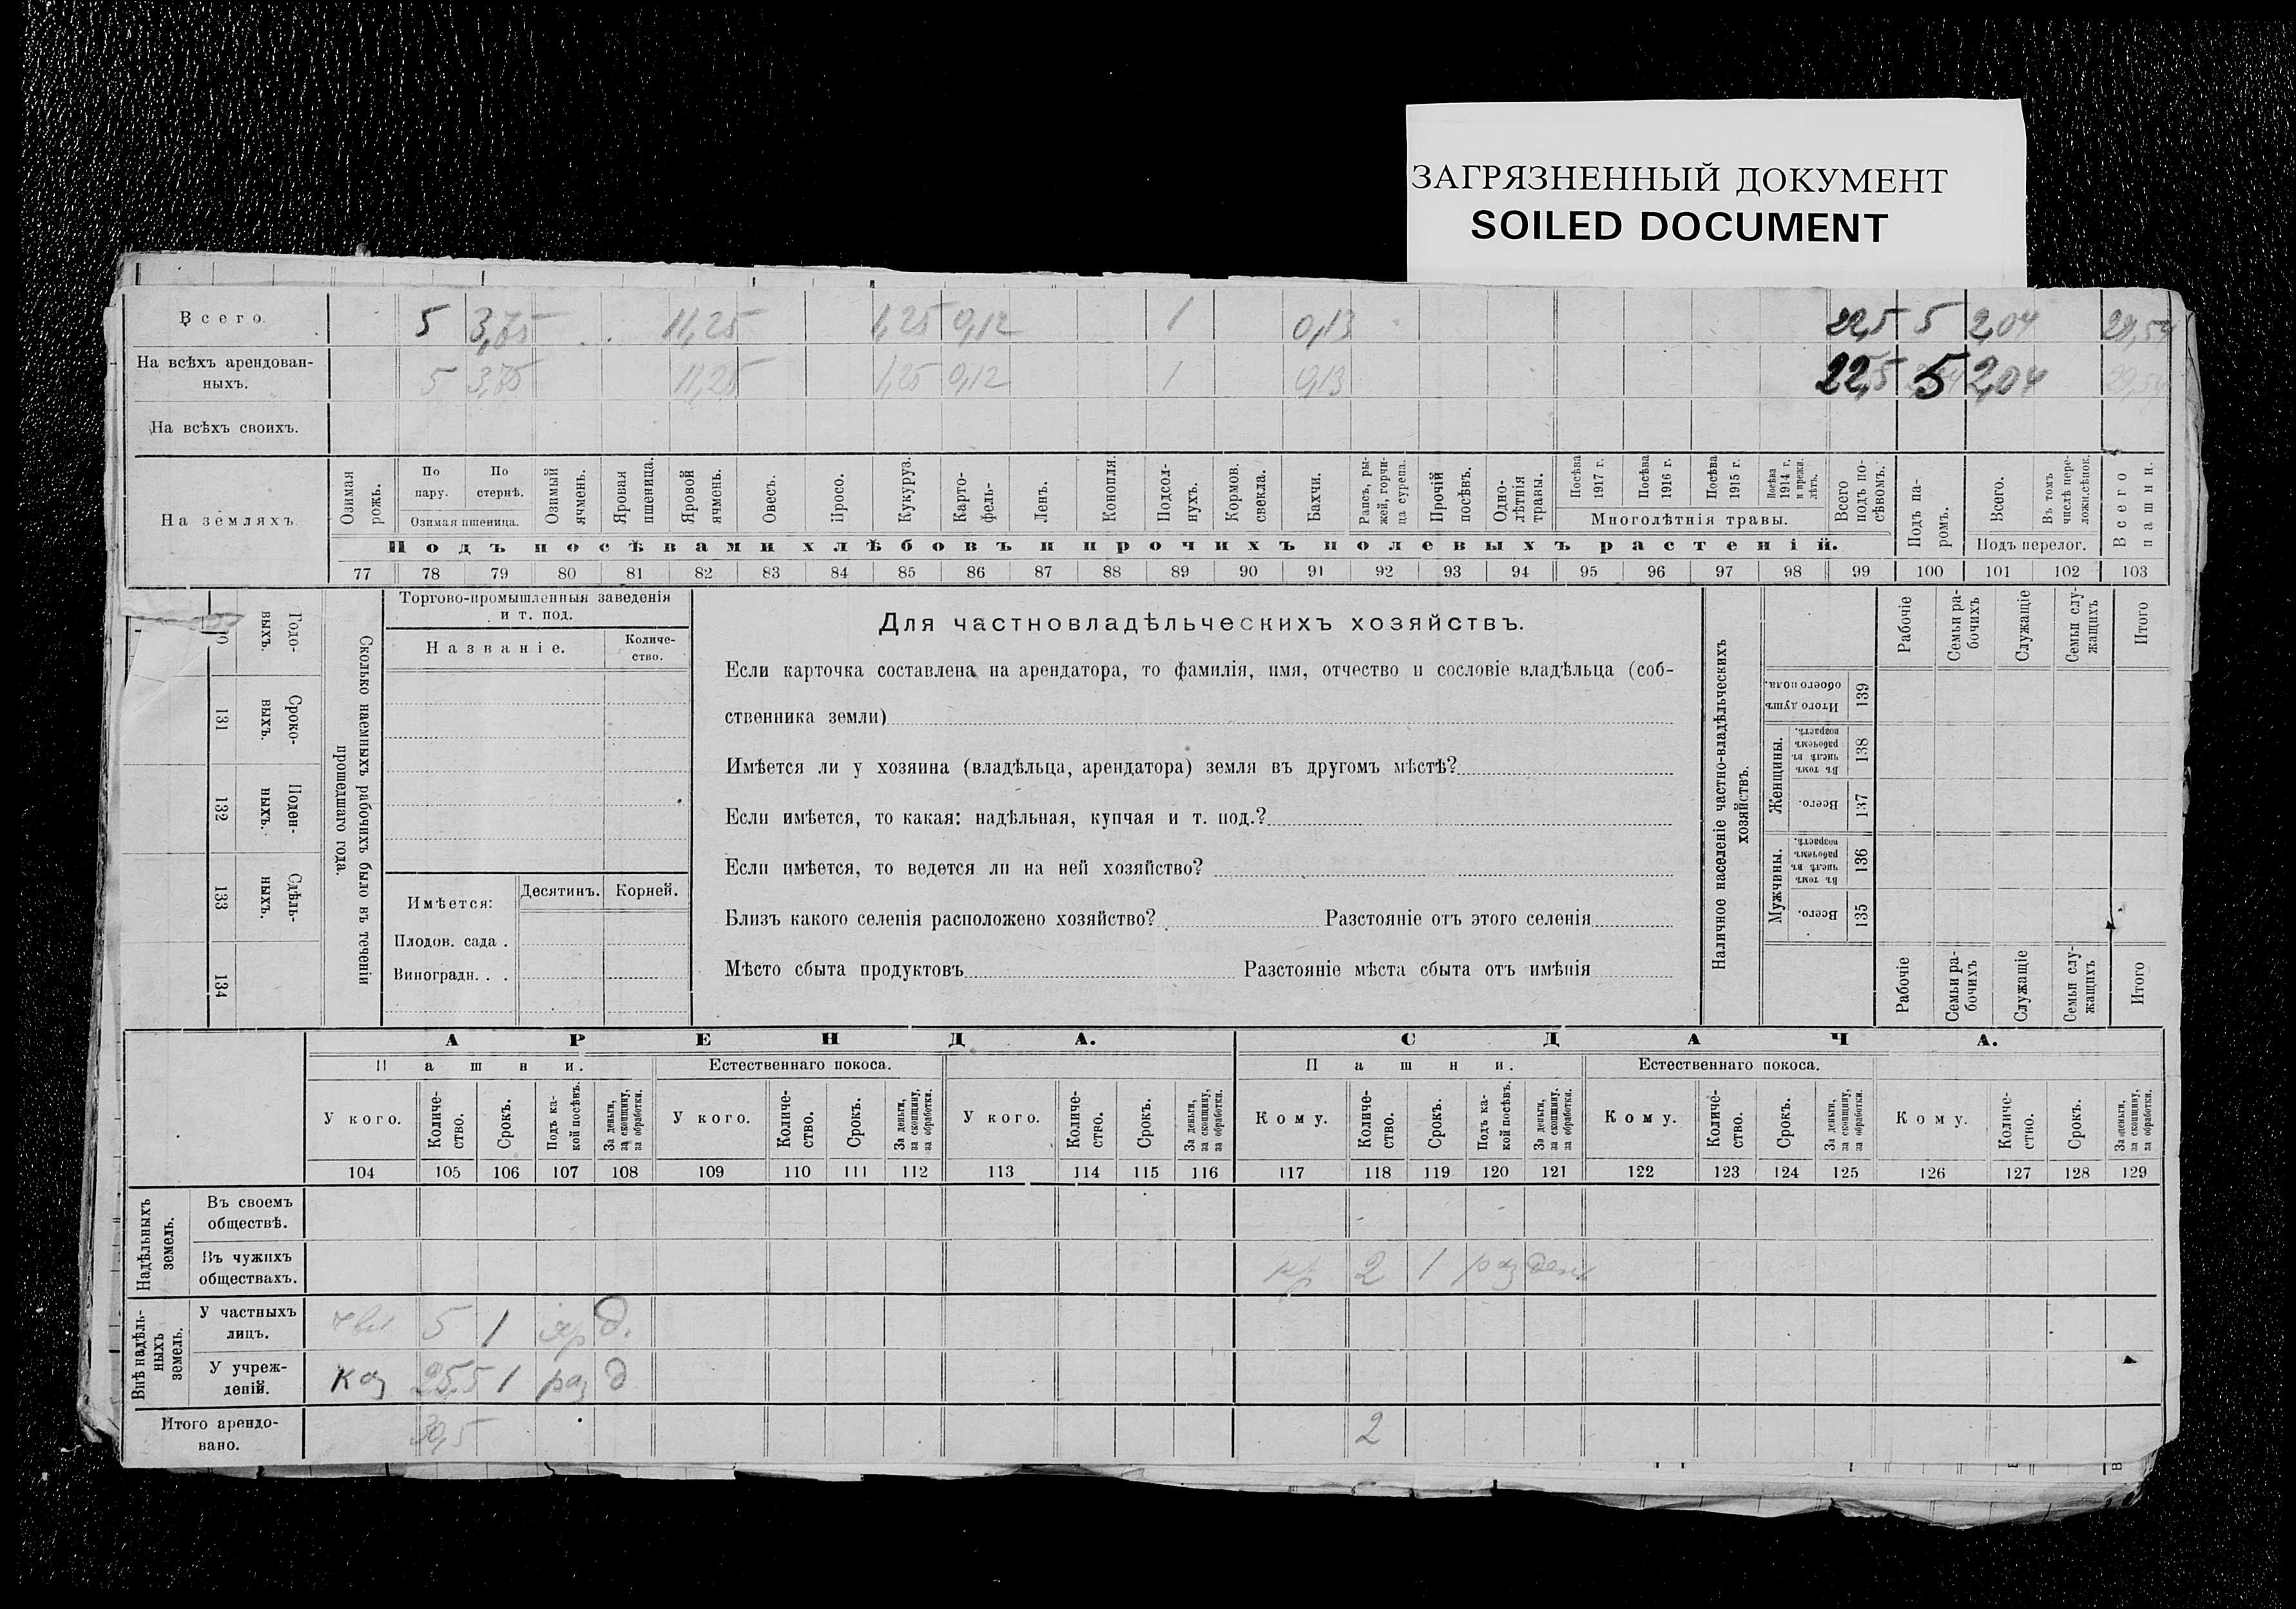 ЗАГРЯЗНЕННЫЙ ДОКУМЕНТ
SOILED DOCUMENT
Всего. 5 3,75 11,25 1,25 0,12 1 0,13 22,5 5 2,04 29,54
На всѣхъ арендован-
ныхъ. 5 3,75 11,25 1,25 0,12 1 0,13 22,5 5 2,04 29,54
На всѣхъ своихъ.
На земляхъ. Озимая рожь. По пару. По стернѣ. Озимая пшеница. Озимый ячмень. Яровая пшеница. Яровой ячмень. Овесъ. Просо. Кукуруз. Карто-фель- Ленъ. Конопля. Подсол-нухъ. Кормов. свекла. Бахчи. Рапсъ, ры-жей, горчи-ца сурепа. Прочій посѣвъ. Одно-лѣтнія травы. Посѣва 1917 г. Посѣва 1916 г. Посѣва 1915 г. Посѣва 1914 г. и прежн. лѣтъ. Многолѣтнія травы. Всего подъ по-сѣвомъ. Подъ па-ромъ. Всего. Въ томъ числѣ пере-ложн.сѣнок. Подъ перелог. Всего пашни.
Подъ посѣвами хлѣбовъ и прочихъ полевыхъ растеній.
77 78 79 80 81 82 83 84 85 86 87 88 89 90 91 92 93 94 95 96 97 98 99 100 101 102 103
Сколько наемныхъ рабочихъ было въ теченіи
прошедшаго года.
Годо-выхъ.
Сроко-выхъ. 131
Поден-ныхъ. 132
Сдѣль-ныхъ. 133
134
Торгово-промышленныя заведенія
и т. под.
Названіе. Количе-ство.
Имѣется: Десятинъ. Корней.
Плодов. сада .
Виноградн. . .
Для частновладѣльческихъ хозяйствъ.
Если карточка составлена на арендатора, то фамилія, имя, отчество и сословіе владѣльца (соб-
ственника земли)
Имѣется ли у хозяина (владѣльца, арендатора) земля въ другомъ мѣстѣ?
Если имѣется, то какая: надѣльная, купчая и т. под.?
Если имѣется, то ведется ли на ней хозяйство?
Близъ какого селенія расположено хозяйство? Разстояніе отъ этого селенія
Мѣсто сбыта продуктовъ Разстояніе мѣста сбыта отъ имѣнія
Наличное населеніе частно-владѣльческихъ
хозяйствъ.
Рабочіе Семьи ра-бочихъ Служащіе Семьи слу-жащихъ Итого
Итого душъ обоего пола. 139
Женщины. Въ томъ числѣ въ рабочемъ возрастѣ. 138
Всего. 137
Мужчины. Въ томъ числѣ въ рабочемъ возрастѣ. 136
Всего. 135
Рабочіе Семьи ра-бочихъ Служащіе Семьи слу-жащихъ Итого
АРЕНДА. СДАЧА.
Пашни. Естественнаго покоса. Пашни. Естественнаго покоса.
У кого. Количе-ство. Срокъ. Подъ ка-кой посѣвъ. За деньги, за скопщину, за обработки. У кого. Количе-ство. Срокъ. За деньги, за скопщину, за обработки. У кого. Количе-ство. Срокъ. За деньги, за скопщину, за обработки. Кому. Количе-ство. Срокъ. Подъ ка-кой посѣвъ. За деньги, за скопщину, за обработки. Кому. Количе-ство. Срокъ. За деньги, за скопщину, за обработки. Кому. Количе-ство. Срокъ. За деньги, за скопщину, за обработки.
104 105 106 107 108 109 110 111 112 113 114 115 116 117 118 119 120 121 122 123 124 125 126 127 128 129
Надѣльныхъ земель.
Въ своемъ
обществѣ.
Въ чужихъ
обществахъ. кр 2 1 раз ден
Внѣ надѣль-ныхъ земель.
У частныхъ
лицъ. 5 1 д.
У учреж-
деній. каз 25,5 1 раз д
Итого арендо-
вано. 30,5 2